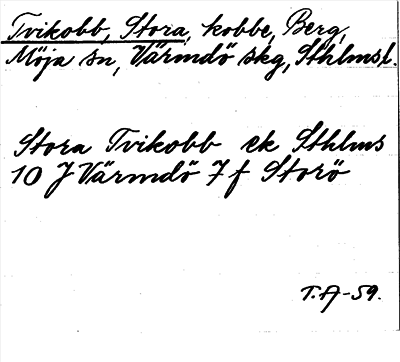 Tvikobb, Stora, kobbe, Berg,
Möja sn, Värmdö skg, Sthlms l.
Stora Tvikobb ek Sthlms
10 J Värmdö 7 f Storö
T.A-59.